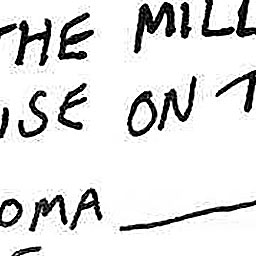 THE MILL
USE ON T
OMA